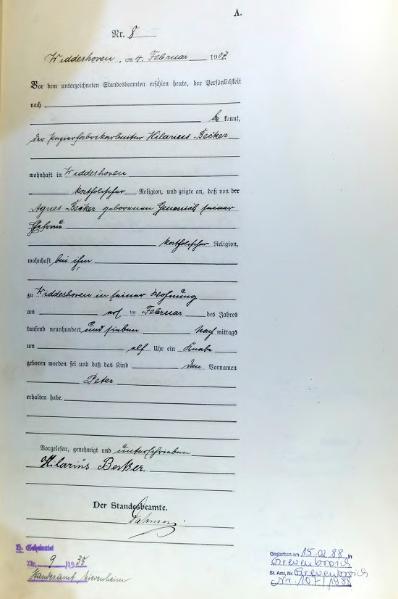 A.
Nr. 8
Widdershoven, am 4. Februar 1907.
Vor dem unterzeichneten Standesbeamten erschien heute, der Persönlichkeit
nach
be kannt,
der Papierfabrikarbeiter Hilarius Becker
wohnhaft in Widdershoven
katholischer Religion, und zeigte an, daß von der
Agnes Becker geborenen seiner
Ehefrau
katholischer Religion,
wohnhaft bei ihm
zu Widdershoven in seiner Wohnung
am in Februar des Jahres
tausend neunhundert und sieben Nach mittags
um elf Uhr ein Knabe
geboren worden sei und daß das Kind den Vornamen
Peter
erhalten habe.
Vorgelesen, genehmigt und unterschrieben
Hilarius Becker
Der Standesbeamte.
Nr. 9
Standesamt Nievenheim
Gestorben am 15.02.88 in
Grevenbroich
St. Amt, Nr. Grevenbroich
Nr. 107/1988